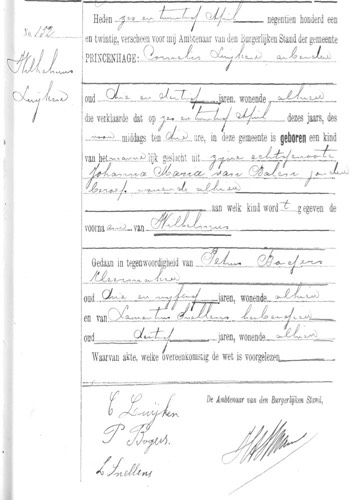 No 152
Wilhelmus
Luijken
Heden zes en twintig April negentien honderd een
en twintig, verscheen voor mij Ambtenaar van den Burgerlijken Stand der gemeente
PRINCENHAGE: Cornelis Luijken arbeider
oud drie en dertig jaren, wonende alhier
die verklaarde dat op zes en twintig April dezes jaars, des
voor middags ten drie ure, in deze gemeente is geboren een kind
van het mannelijk geslacht uit zijne echtgenoote
Johanna Maria van zonder
beroep wonende alhier
aan welk kind wordt gegeven de
voornaam van Wilhelmus
Gedaan in tegenwoordigheid van Petrus Bogers
kleermaker
oud drie en vijftig jaren, wonende alhier
en van Snellens herbergier
oud dertig jaren, wonende alhier
Waarvan akte, welke overeenkomstig de wet is voorgelezen
De Ambtenaar van den Burgerlijken Stand,
C Luijken
P Bogers
L Snellens